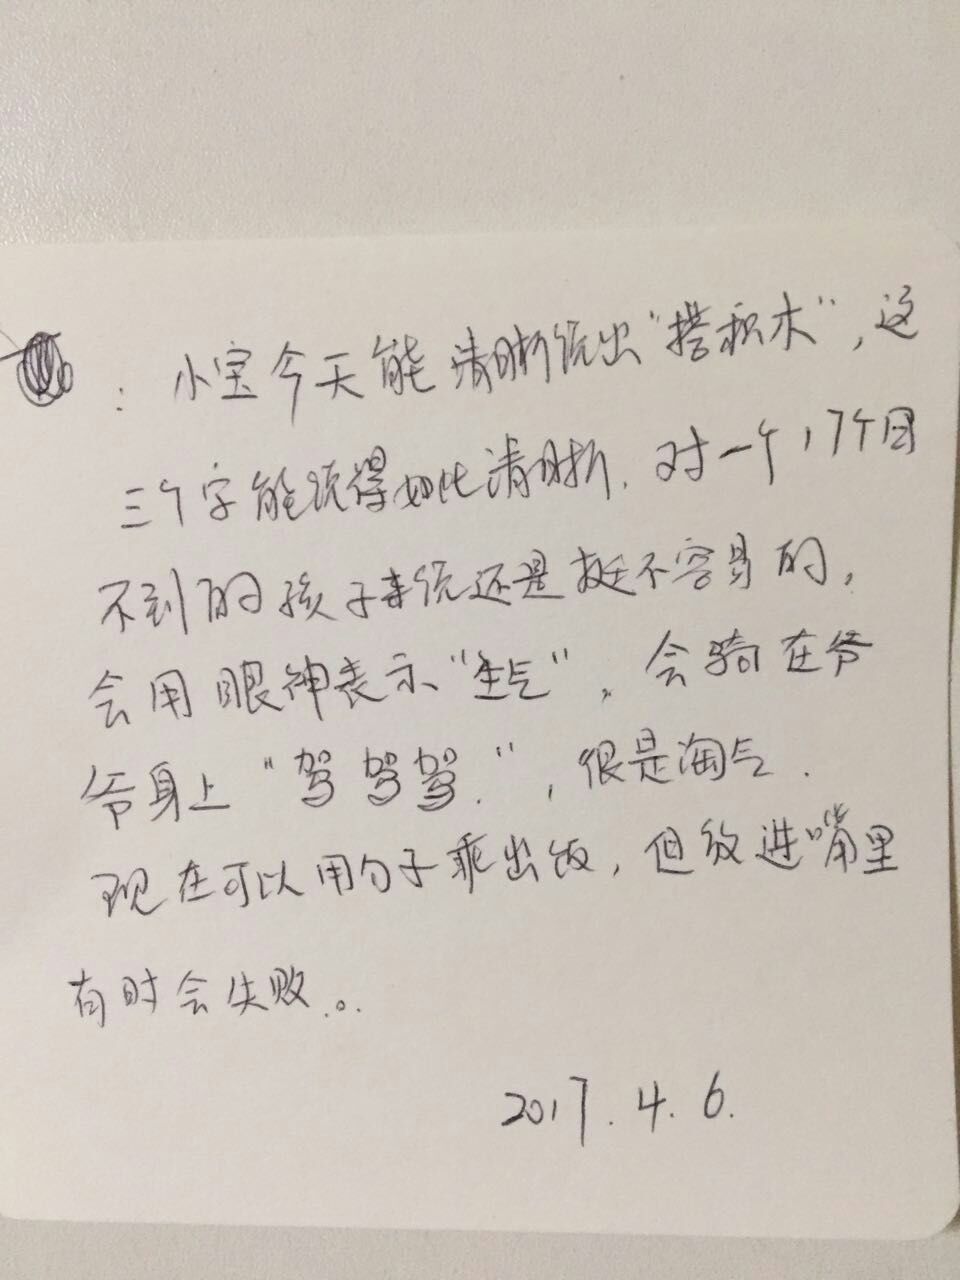 ：小宝今天能清晰说出“搭积木”，这
三个字能说得如此清晰，对一个17个月
不到的孩子来说还是挺不容易的，
会用眼神表示“生气”，会骑在爷
爷身上“驾驾驾.”，很是淘气.
现在可以用勺子乘出饭，但放进嘴里
有时会失败.。
2017.4.6.